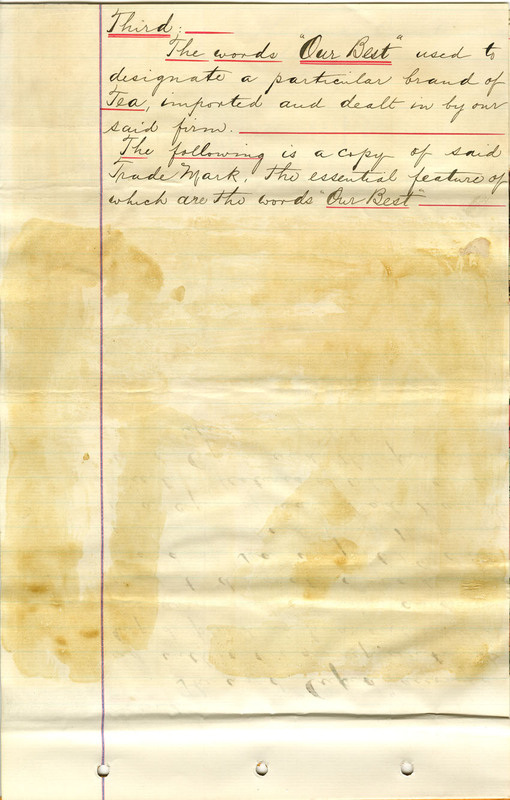 Third;
The words "Our Best" used to
designate a particular brand of
Tea, imported and dealt in by our
said firm.
The following is a copy of said
Trade Mark, the essential feature of
which are the words "Our Best"